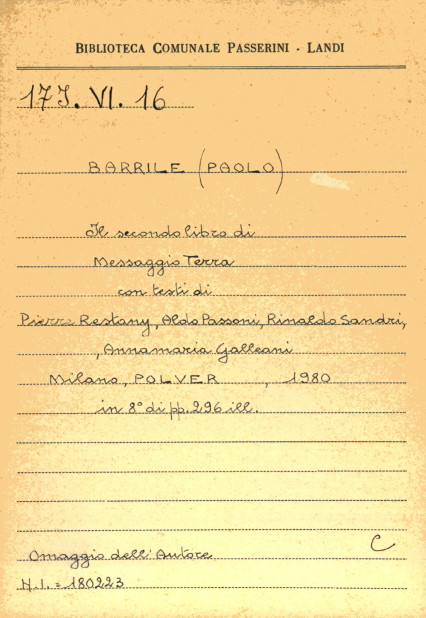 BIBLIOTECA COMUNALE PASSERINI - LANDI
17J. VI. 16
BARRILE (PAOLO)
Il secondo libro di
Messaggio Terra
con testi di
Pierre Restany, Aldo Passoni, Rinaldo Sandri,
, Annamaria Galleani
Milano, POLVER , 1980
in 8° di pp. 296 ill.
C
Omaggio dell'Autore
N.I. = 180223